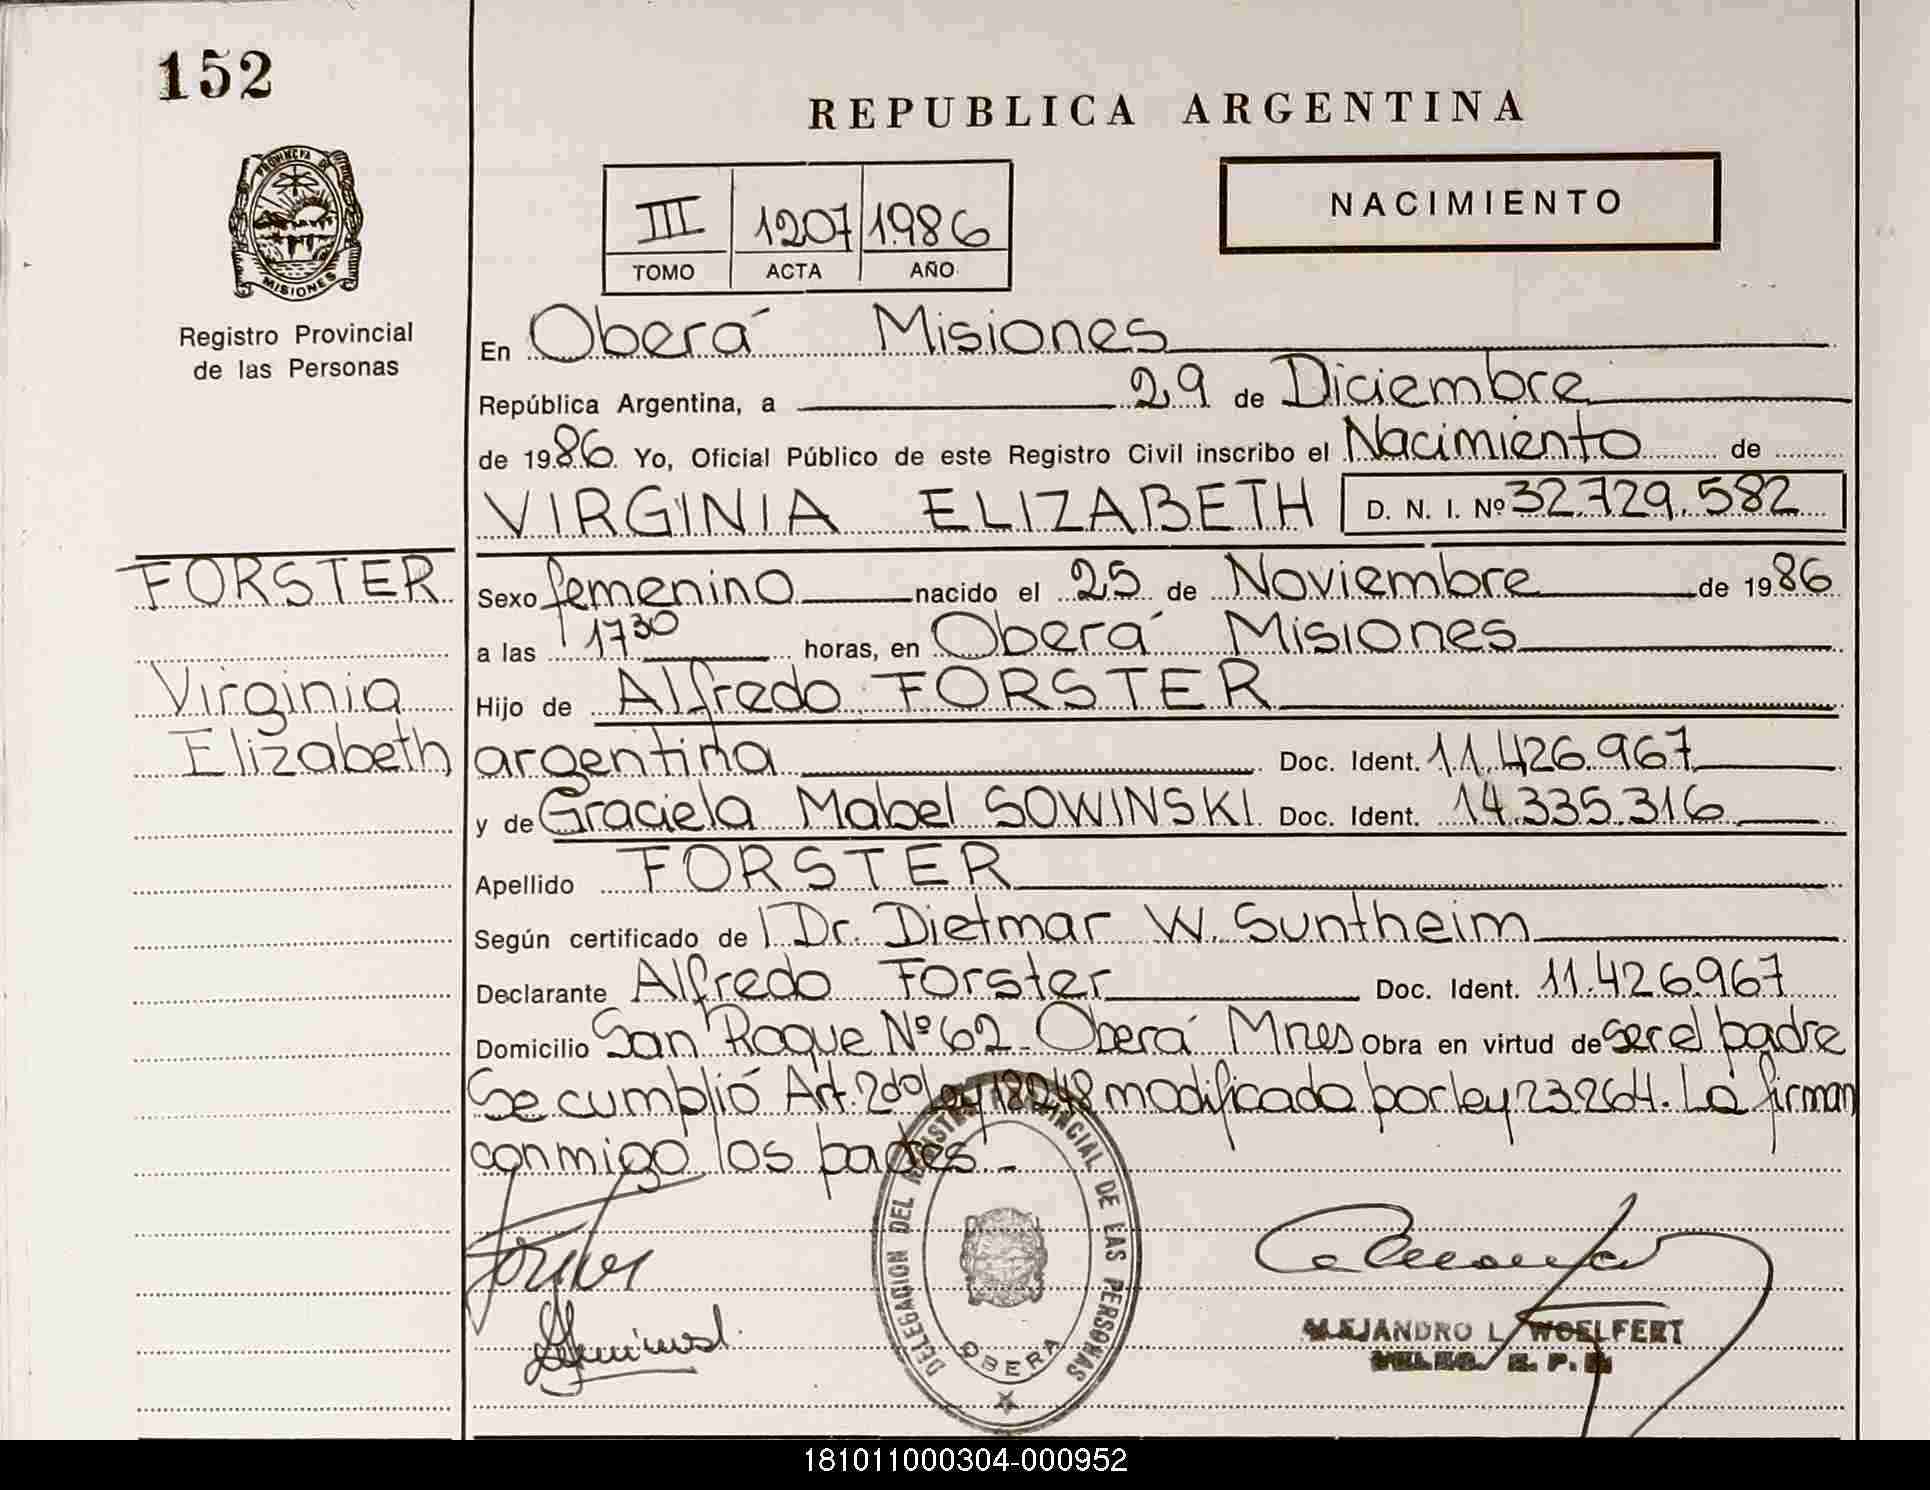 152
REPUBLICA ARGENTINA
PROVINCIA DE
MISIONES
Registro Provincial
de las Personas
III 1207 1986
TOMO ACTA AÑO
NACIMIENTO
En Oberá Misiones
República Argentina, a 29 de Diciembre
de 1986. Yo, Oficial Público de este Registro Civil inscribo el Nacimiento de
VIRGINIA ELIZABETH D. N. I. Nº 32.729.582
FORSTER
Virginia
Elizabeth
Sexo femenino nacido el 25 de Noviembre de 1986
a las 17 30 horas, en Oberá Misiones
Hijo de Alfredo FORSTER
argentina Doc. Ident. 11.426.967
y de Graciela Mabel SOWINSKI Doc. Ident. 14.335.316
Apellido FORSTER
Según certificado de Dr. Dietmar W. Suntheim
Declarante Alfredo Forster Doc. Ident. 11.426.967
Domicilio San Roque Nº 62 - Oberá Mnes Obra en virtud de ser el padre
Se cumplió Art. 2do ley 18248 modificada por ley 23264. La firman
conmigo los padres -
DELEGACION DEL REGISTRO PROVINCIAL DE LAS PERSONAS
OBERA
ALEJANDRO L. WOELFERT
181011000304-000952